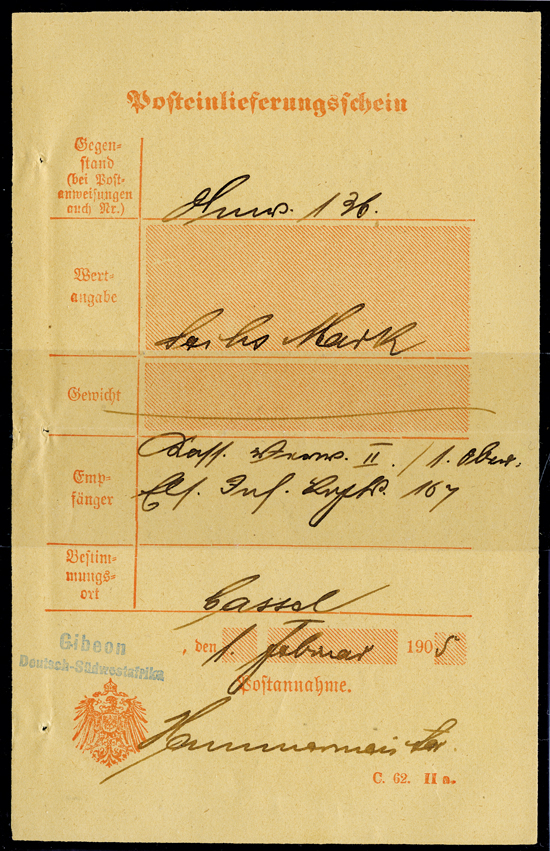 Posteinlieferungsschein
Gegen-
stand
(bei Post-
anweisungen
auch Nr.)
Anw. 136.
Wert-
angabe
Sechs Mark
Gewicht
Emp-
fänger
Kass. Verw. II. / 1. Ober.
Els. Inf. Regts. 167
Bestim-
mungs-
ort
Cassel
Gibeon
Deutsch-Südwestafrika
, den 1. Februar 1905
Postannahme.
C. 62. II a.